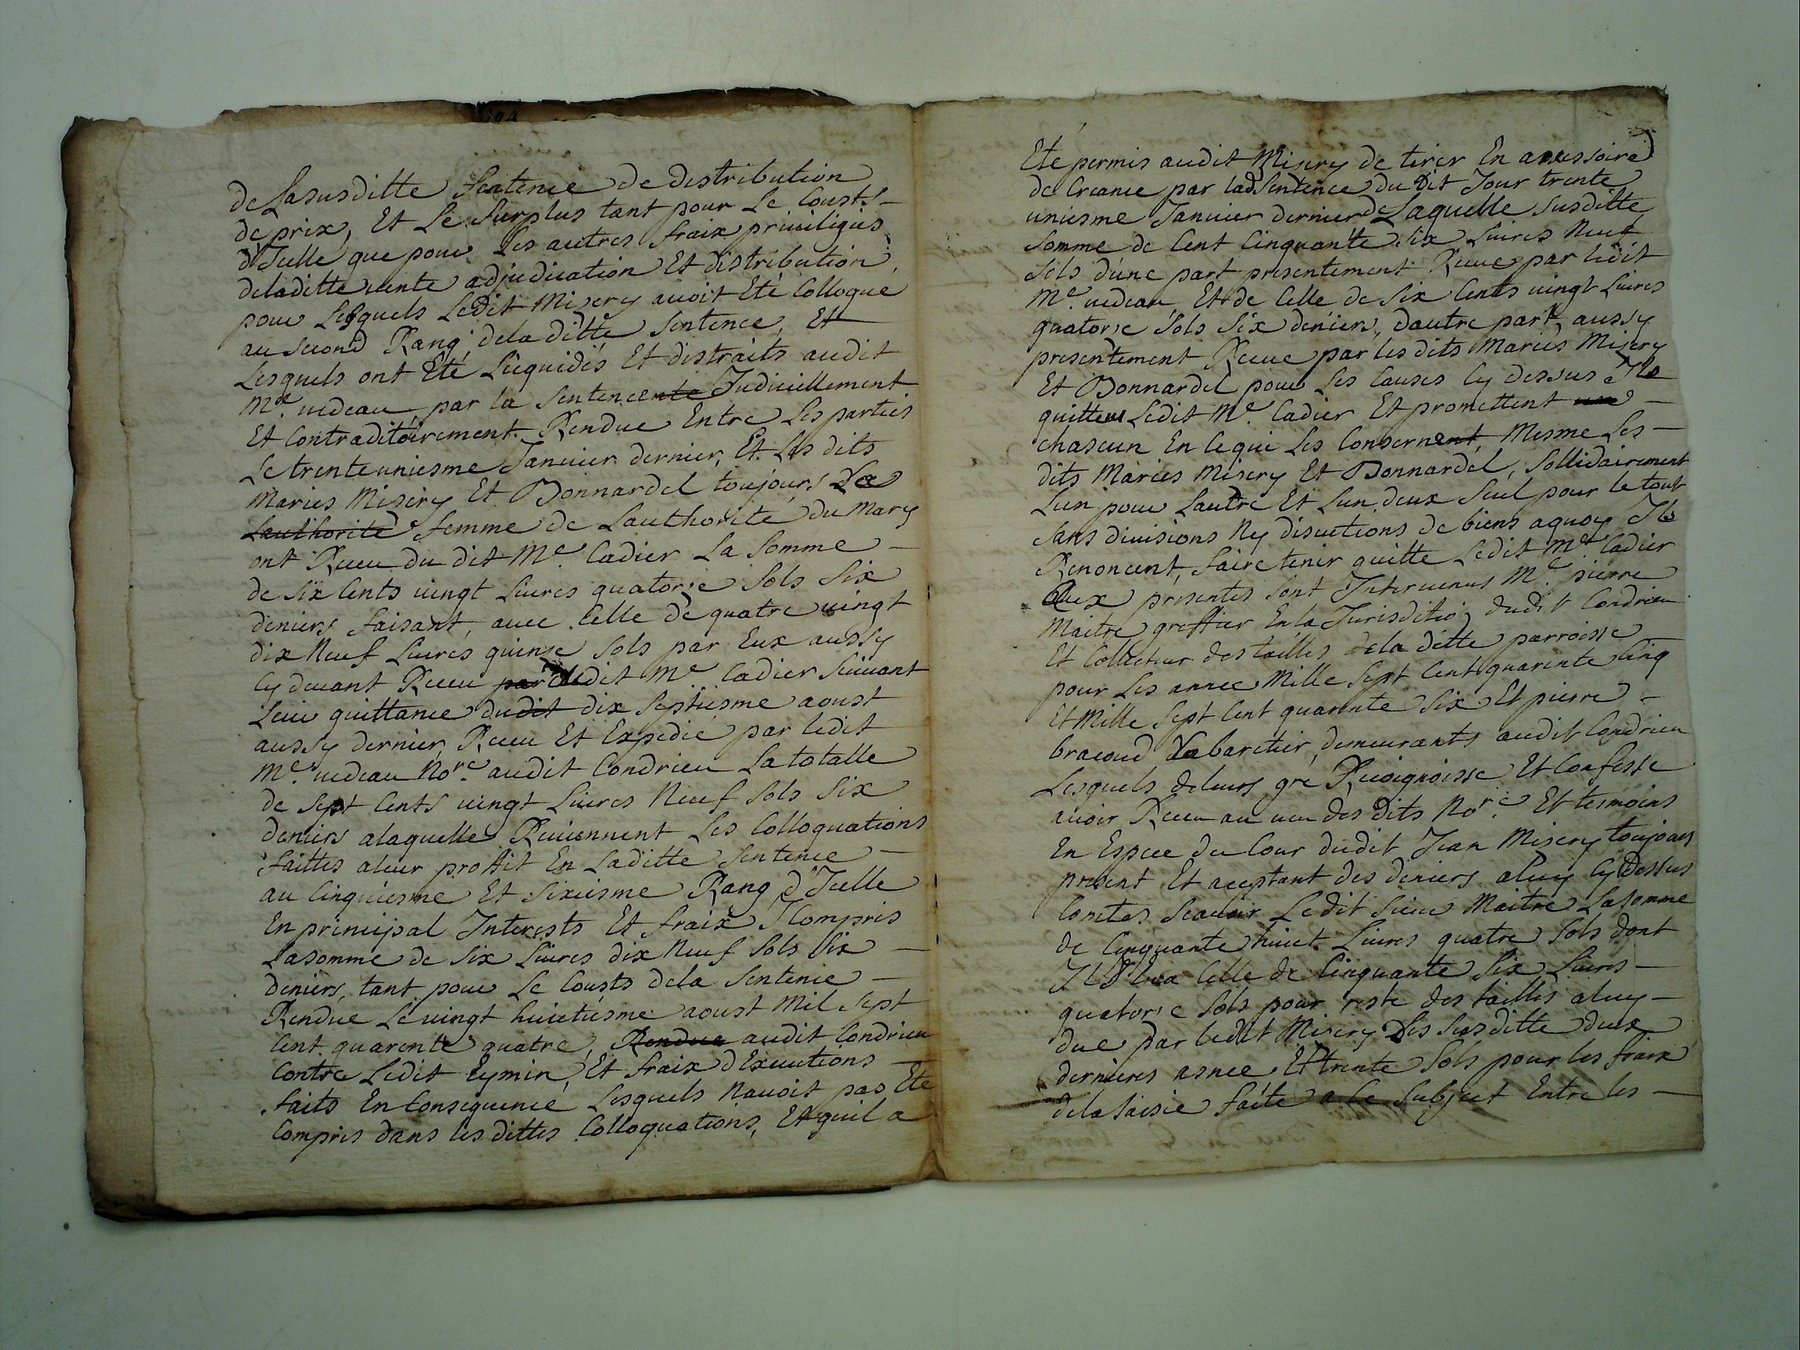 de Lasusditte Sentence de distribution
de prix, Et Le Surplus tant pour Le Cousts
d'Icelle que pour Les autres fraix priuiligiés
deladitte uente adjudication Et distribution,
pour Lesquels Ledit Misery auoit Eté Colloque
au second Rang dela ditte Sentence, Et
Lesquels ont Eté Liequidés Et distraits audit
Me. uedeau par la Sentence Judiciellement
Et Contraditoirement Rendue Entre Les parties
Le trente uniesme Januier dernier, Et Les dits
Mariés Misery Et Donnardel toujours La
Lauthorité femme de Lauthorité du Mary
ont Receu du dit Me. Cadier La Somme
de Six Cents uingt Liures quatorze Sols Six
deniers faisant, auec Celle de quatre uingt
dix Neuf Liures quinze Sols par Eux aussy
Cy deuant Receu par dudit Me Cadier Suiuant
Leur quittance dudit dix Septiesme aoust
aussy dernier, Receu Et Expedié par ledit
Me. uedeau Nore. audit Condrieu La totalle
de Sept Cents uingt Liures Neuf Sols Six
deniers alaquelle Reuiennent Les Colloquations
faittes aleur proffit En Laditte Sentence
au Cinquiesme Et Sixiesme Rang d'Icelle
En principal Interests Et fraix Y Compris
Lasomme de Six Liures dix Neuf Sols Six
deniers, tant pour Le Cousts dela Sentence
Rendue Le uingt huictiesme aoust Mil Sept
Cent quarente quatre, Rendue audit Condrieu
Contre Ledit Eymin, Et fraix d'Executions
faits En Consequence Lesquels Nauoit pas Eté
Compris dans les dittes Colloquations, Et quil a
Eté permis audit Misery de tirer En accessoire
de Creance par lad. Sentence du Dit Jour trente
uniesme Januier dernier de Laquelle Susditte
Somme de Cent Cinquante Six Liures Neuf
Sols d'une part presentement Receue par ledit
Me. uedeau, Et de Celle de Six Cents uingt Liures
quatorze Sols Six deniers, dautre part aussy
presentement Receue par les dits Mariés Misery
Et Donnardel pour Les Causes Cy dessus Ils
quittent Ledit Me. Cadier Et promettent
chascun En Ceque Les Concernent, Mesme Les
dits Mariés Misery Et Donnardel, Sollidairement
Lun pour Lautre Et Lun deux Seul pour le tout
Sans diuisions Ny discutions de biens aquoy Ils
Renoncent, faire tenir quitte Ledit Me. Cadier
Aux presentes Sont Interuenus Me. pierre
Maitre greffier En la Jurisditio dudit Condrieu
Et Collecteur des tailles dela ditte parroisse
pour Les annee Mille Sept Cent quarente Cinq
Et Mille Sept Cent quarente Six Et pierre
bracoud Cabaretier, demeurants audit Condrieu
Lesquels deleurs gré Recoignoisse Et Confesse
auoir Receu au ueu des dits Nore. Et tesmoins
En Espece du Cour dudit Jean Misery toujours
present Et aceptant des deniers aluy Cy Dessus
Comtes Scauoir Ledit Sieur Maitre La Somme
de Cinquante huict Liures quatre Sols dont
Celle de Cinquante Six Liures
quatorze Sols pour reste des tailles aluy
due par Ledit Misery Les Susditte deux
dernieres année Et trente Sols pour les fraix
dela Saisie faite a Ce Subject Entre les